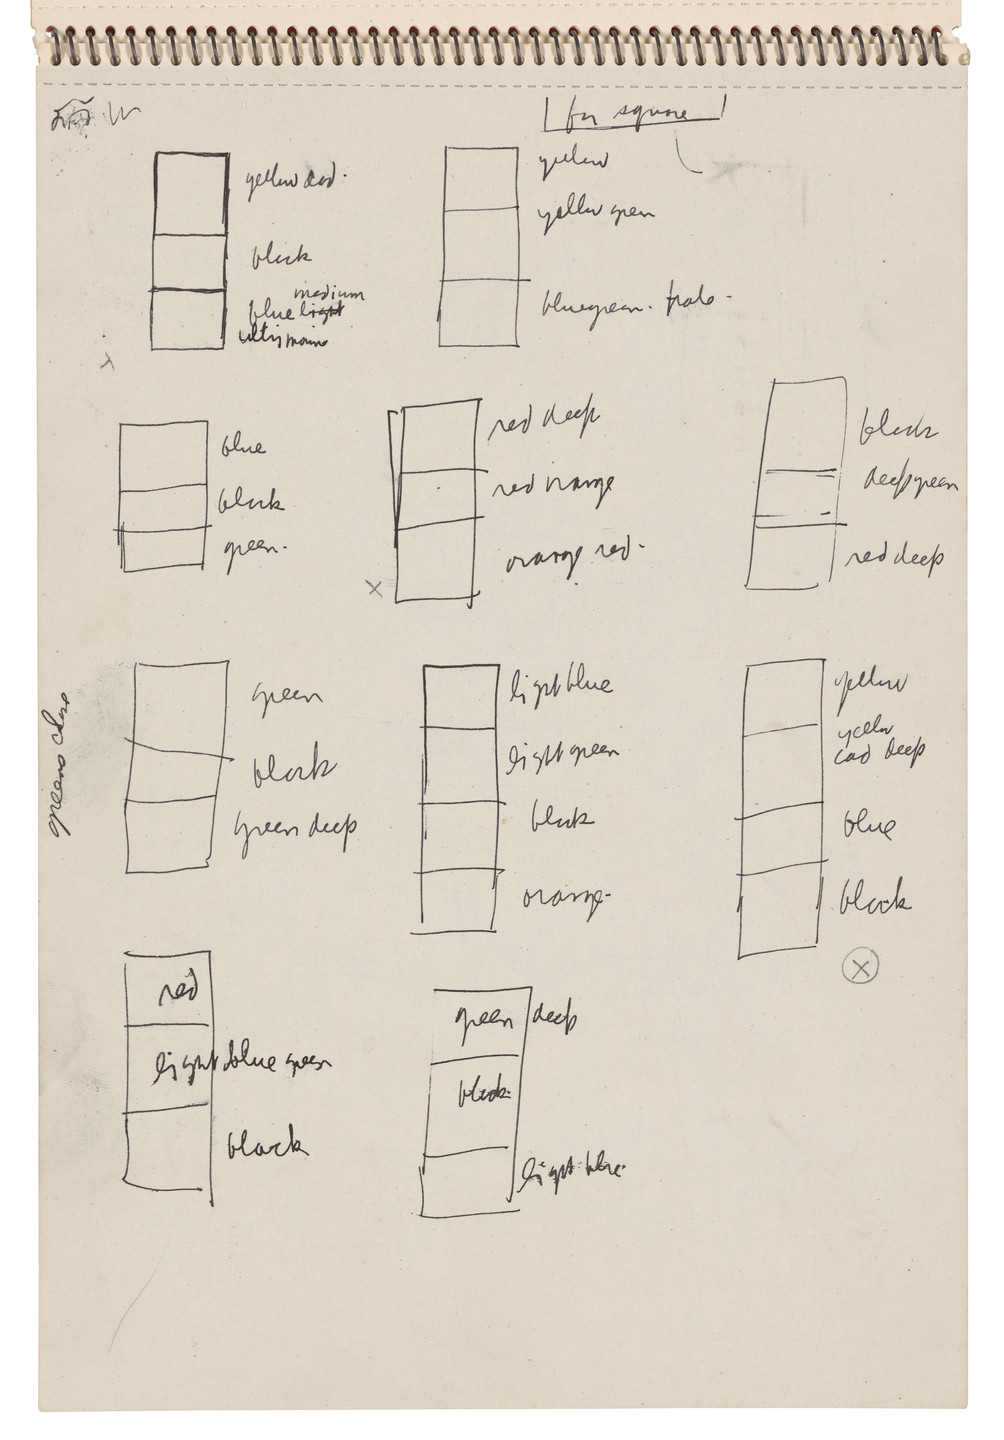 for square
yellow cad.
black
medium
blue light
ultramarine
yellow
yellow green
bluegreen.
blue
black
green.
red deep
red orange
orange red.
black
deep green
red deep
greens close
green
black
green deep
light blue
light green
black
orange.
yellow
yellow
cad deep
blue
black
red
light blue green
black
green deep
black.
light blue.